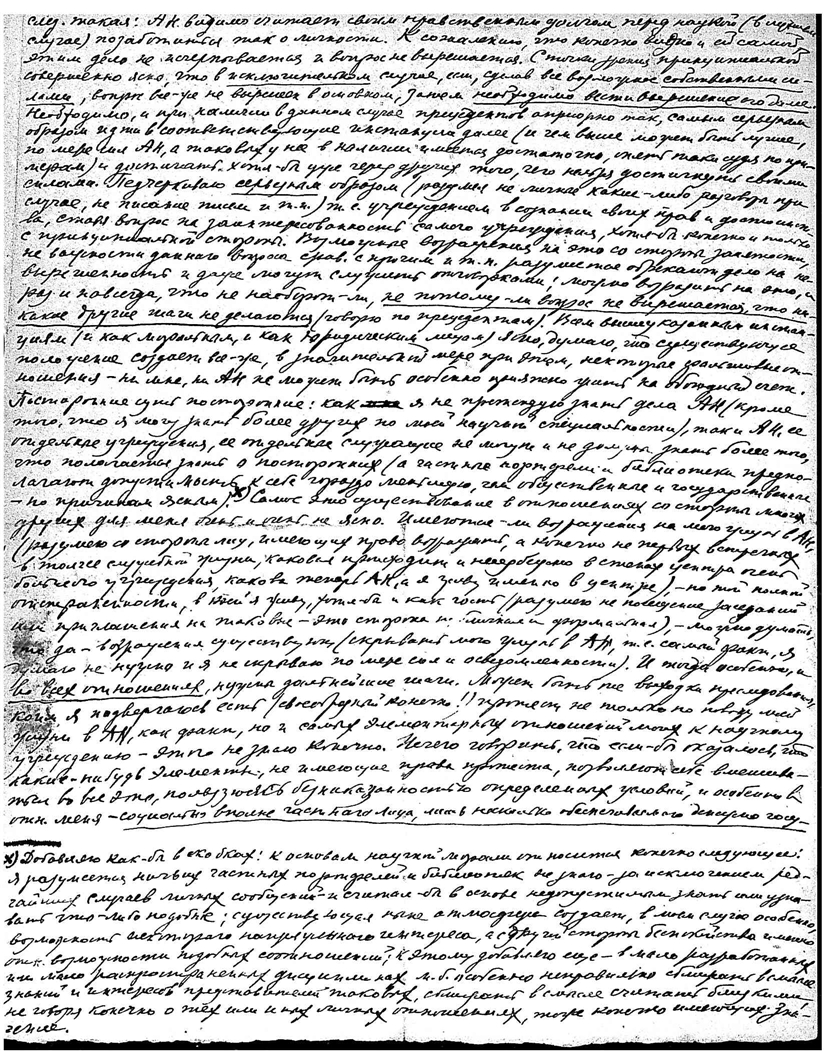 слу. такая: АН видимо считает своим нравственным долгом перед наукой (в лучшем
случае) позаботиться так о личности. К сожалению, что конечно видно и ей самой,
этим дело не исчерпывается и вопрос не вырешается. С точки зрения принципиальной
совершенно ясно, что в исключительном случае, если, сделав все возможное собственными си-
лами, вопрос все-же не вырешен в основном, затем необходимо вести вырешение его далее.
Необходимо, и при наличии в данном случае прецедентов априорно так, самым серьезным
образом идти в соответствующие инстанции далее (и чем выше может быть лучше,
по мере сил АН, а таковых у нее в наличии имеется достаточно, опять таки судя по при-
мерам) и достигать хотя-бы уже через других того, чего нельзя достигнуть своими
силами. Подчеркиваю серьезным образом (разумея не личные какие-либо разговоры при
случае, не писание писем и т.п.) т.е. учреждением в сознании своих прав и достоинст-
ва, ставя вопрос на заинтересованность самого учреждения, хотя-бы конечно и только
с принципиальной стороны. Возможные возражения на это со стороны занятости,
не важности данного вопроса срав. с прочим и т.п. разумеется обрекают дело на не-
вырешенность и даже могут служить отговорками; можно возразить на это, и
раз и навсегда, что не наоборот-ли, не потому-ли вопрос не вырешается, что ни-
какие другие шаги не делаются (говорю по прецедентам). Всем вышеуказанным инстан-
циям (и как моральным, и как юридическим лицам) ясно, думаю, что существующее
положение создает все-же, в значительной мере при этом, некоторые фальшивые от-
ношения - ни мне, ни АН не может быть особенно приятно жить на обоюдный счет.
Посторонние суть посторонние: как я не претендую знать дела АН (кроме
того, что я могу знать более других по моей научной специальности), так и АН, ее
отдельные учреждения, ее отдельные служащие не могут и не должны знать более того,
что полагается знать о посторонних (а частные портфели и библиотеки предпо-
лагают допустимость к себе гораздо меньшую, чем общественные и государственные
- по причинам ясным).х) Самое это существование в отношениях со стороны многих
других для меня очень и очень не ясно. Имеются-ли возражения на мое участие в АН,
(разумею со стороны лиц, имеющих право возражать, а конечно не первых встречных
в толчее служебной жизни, каковая происходит и необходимо в стенах центра очень
большого учреждения, какова теперь АН, а я живу именно в центре), - по той полной
отстраненности, в коей я живу, хотя-бы и как гость (разумею не посещение заседаний
или приглашения на таковые - это сторона и формальная), - можно думать,
что да - возражения существуют (скрывать мое участие в АН, т.е. самый факт, я
думаю не нужно и я не скрываю по мере сил и осведомленности). И тогда особенно, и
во всех отношениях, нужны дальнейшие шаги. Может быть те выходки преследования,
коим я подвергаюсь есть (своеобразный конечно!) протест не только по поводу моей
жизни в АН, как факт, но и самых элементарных отношений моих к научному
учреждению - этого не знаю конечно. Нечего говорить, что если-бы оказалось, что
какие-нибудь элементы, не имеющие права протеста, позволяют себе вмешива-
ться во все это, пользуясь безнаказанностью определенных условий, и особенно в
отн. меня - сущностью вполне частного лица, лишь насколько обеспечиваемого денежно госу-
х) Добавляю как-бы в скобках: к основам научной морали относится конечно следующее:
я разумеется ничьих частных портфелей и библиотек не знаю - за исключением ред-
чайших случаев личных сообщений и считал-бы в основе недопустимым знать или узна-
вать что-либо подобное; существующая ныне атмосфера создает, в моем случае особенно,
возможность некоторого напряженного интереса, а с другой стороны беспокойства именно
отн. возможности подобных соотношений; к этому добавляю еще - в мало разработанных
или мало распространенных дисциплинах м.б. особенно неправильно смотреть в смысле
знаний и интересов представителей таковых, смотреть в смысле считать близкими
не говоря конечно о тех или иных личных отношениях, тоже конечно имеющих зна-
чение.